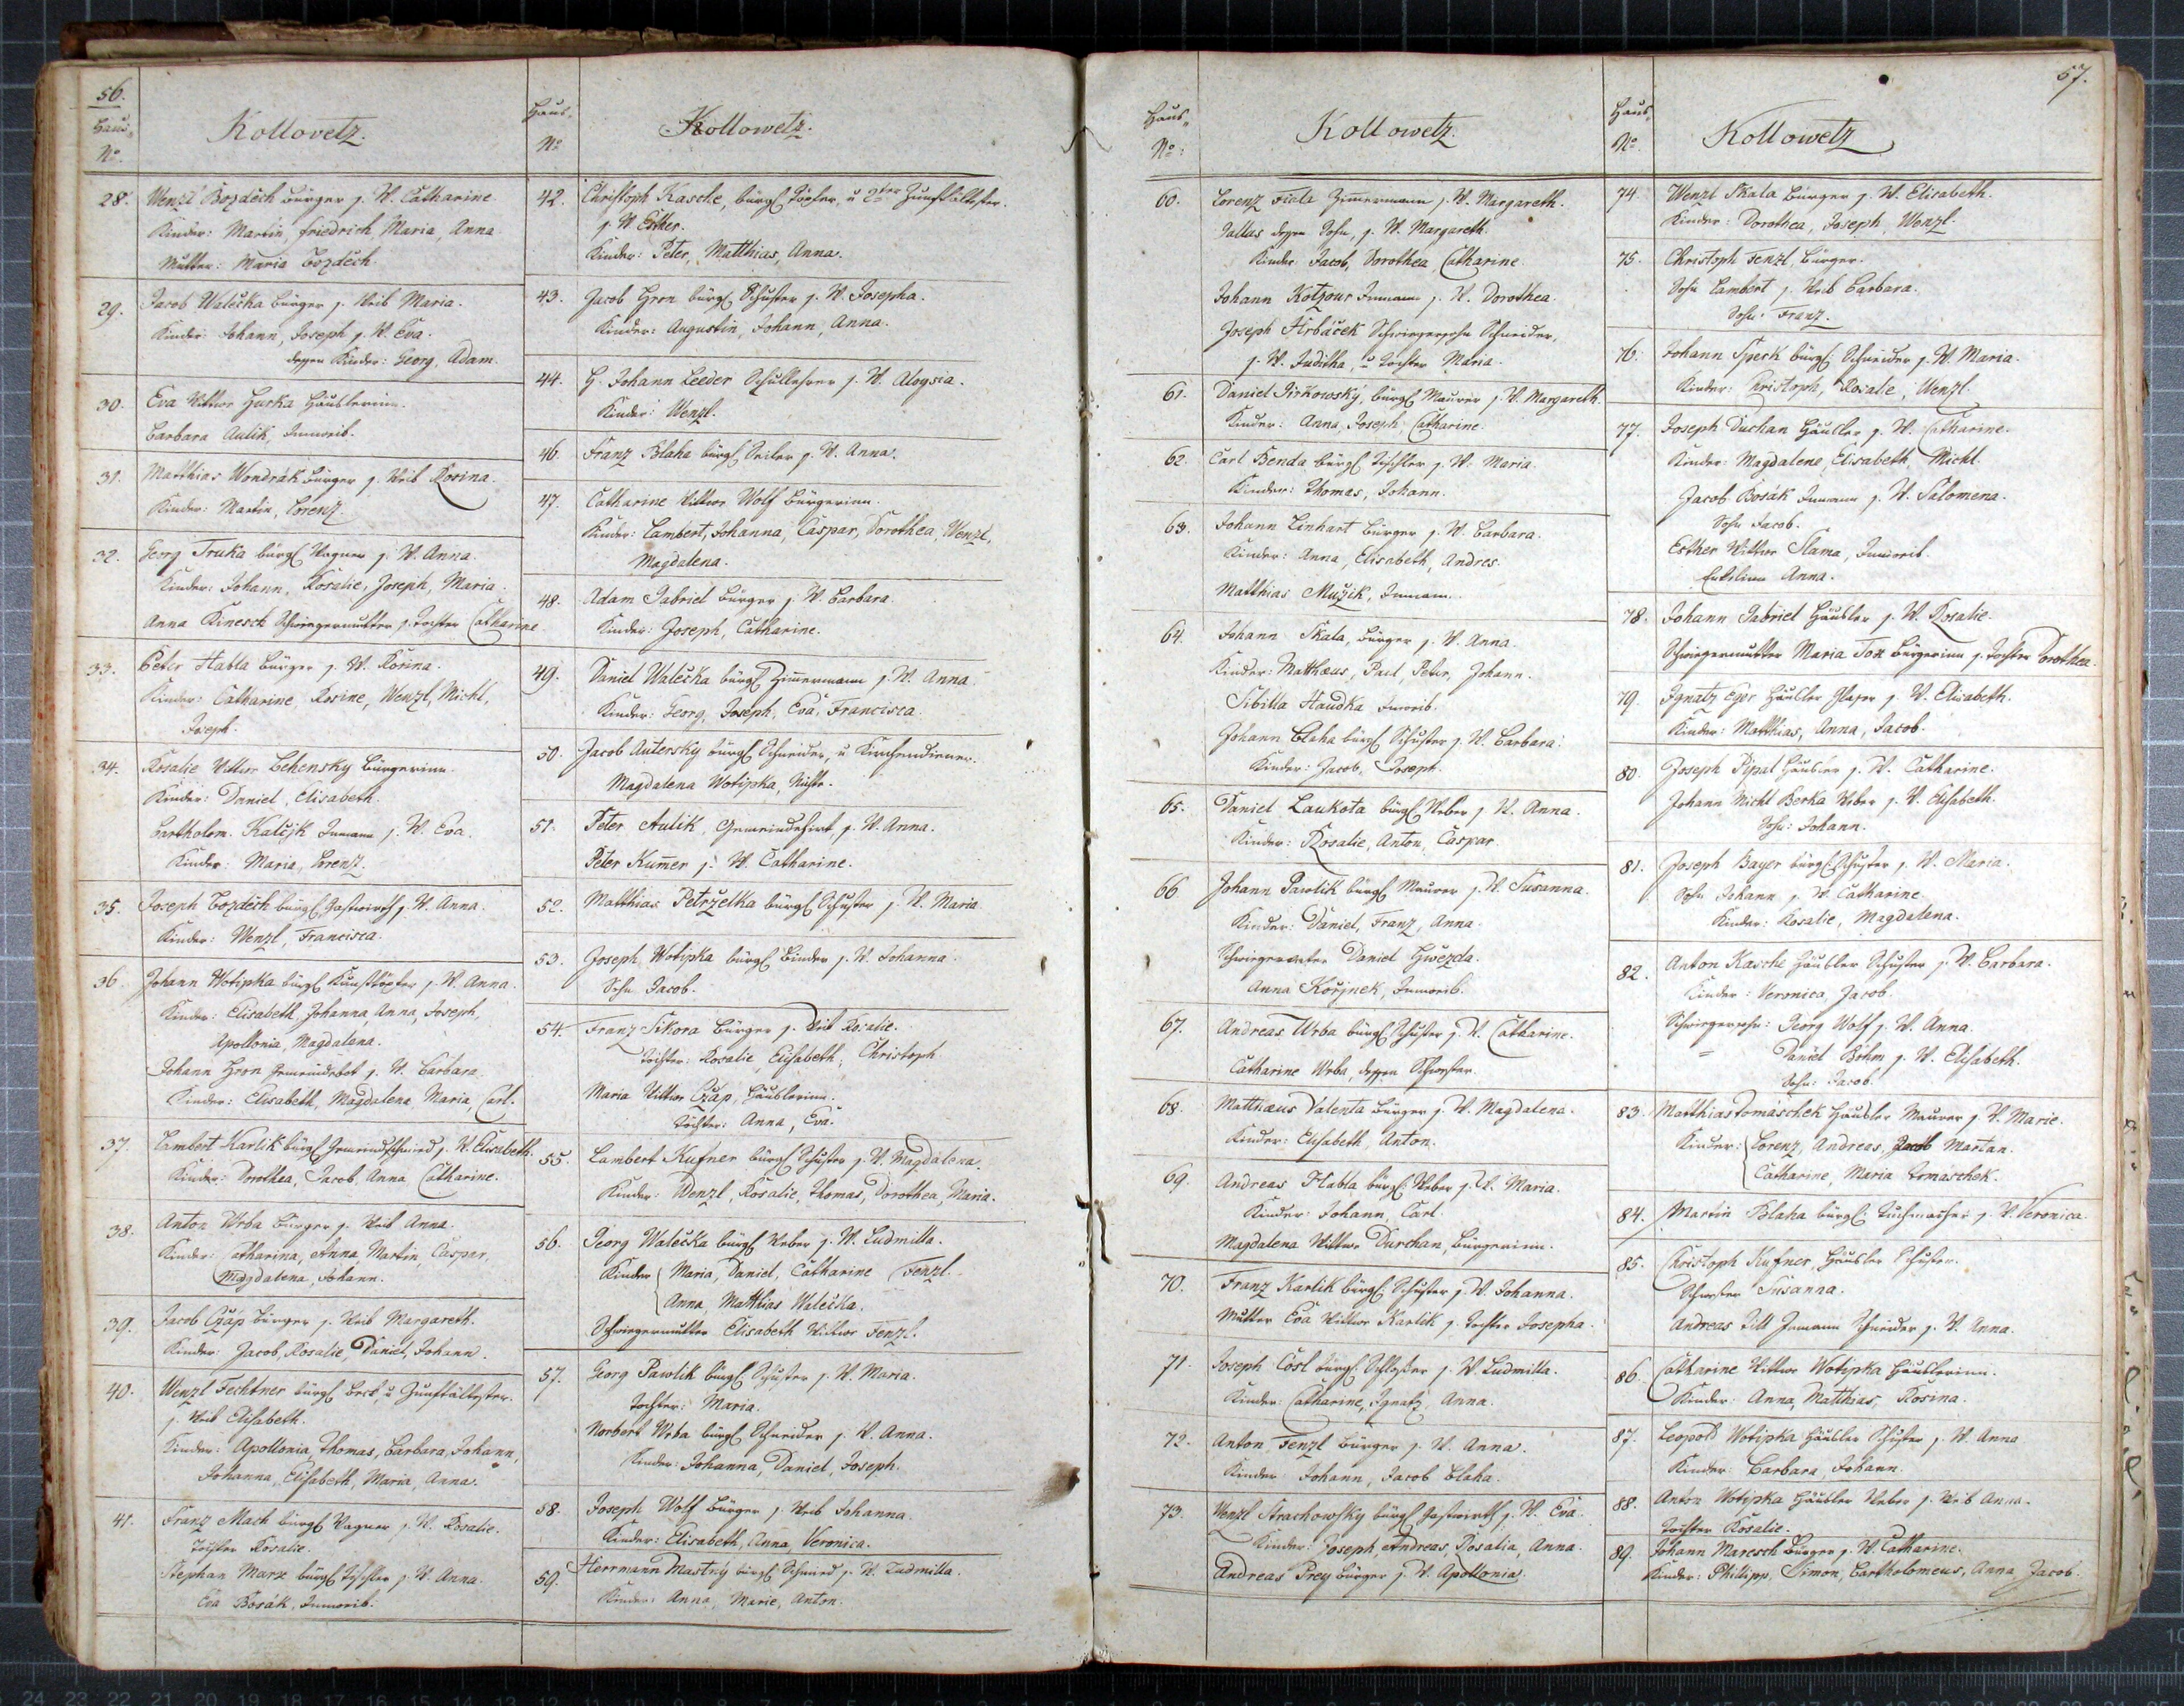 56.
Haus
No.
Kollovetz.
28. Wenzl Bozdech Bürger s. W. Catharine
Kinder: Martin, Friedrich, Maria, Anna
Mutter: Maria Bozdech.
29. Jacob Walečka Bürger s. Weib Maria.
Kinder: Johann, Joseph s. W. Eva.
dessen Kinder: Georg, Adam.
30. Eva Wittwe Hurka Häuslerinn.
Barbara Aulik, Innweib.
31. Matthias Wondrák Bürger s. Weib Rosina.
Kinder: Martin, Lorenz
32. Georg Truka bürgl Wagner s. W. Anna.
Kinder: Johann, Rosalie, Joseph, Maria.
Anna Kinesch Schwiegermutter s. Tochter Catharine
33. Peter Habla Bürger s. W. Rosina.
Kinder: Catharine, Rosine, Wenzl, Michl,
Joseph.
34. Rosalie Wittwe Lehensky Bürgerinn.
Kinder: Daniel, Elisabeth.
Bartholom. Inmann s. W. Eva.
Kinder: Maria, Lorenz.
35. Joseph Bozdech bürgl Gastwirth s. W. Anna.
Kinder: Wenzl, Francisca.
36. Johann Wotipka bürgl s. W. Anna.
Kinder: Elisabeth, Johanna, Anna, Joseph,
Apollonia, Magdalena.
Johann Hron Gemeindebot s. W. Barbara.
Kinder: Elisabeth, Magdalena, Maria, Carl.
37. Lambert Karlik bürgl Gemeindschmied s. W. Elisabeth.
Kinder: Dorothea, Jacob, Anna, Catharine.
38. Anton Wrba Bürger s. Weib Anna.
Kinder: Catharina, Anna, Martin, Caspar,
Magdalena, Johann.
39. Jacob Czáp Bürger s. Weib Margareth.
Kinder: Jacob, Rosalie, Daniel, Johann.
40. Wenzl Fechtner bürgl Beck, u Zunftältester.
s. Weib Elisabeth.
Kinder: Apollonia, Thomas, Barbara, Johann,
Johanna, Elisabeth, Maria, Anna.
41. Franz Mach bürgl Wagner s. W. Rosalie.
Tochter Rosalie.
Stephan Marx bürgl Tischler s. W. Anna.
Eva Bosák, Innweib.
Haus
No
Kollowetz.
42. Christoph Kasche, bürgl Töpfer, u 2ter Zunftältester.
s. W. Esther.
Kinder: Peter, Matthias, Anna.
43. Jacob Hron bürgl Schuster s. W. Josepha.
Kinder: Augustin, Johann, Anna.
44. H. Johann Leeder Schullehrer s. W. Aloysia.
Kinder: Wenzl.
46. Franz Blaha bürgl Seiler s. W. Anna.
47. Catharine Wittwe Wolf Bürgerinn.
Kinder: Lambert, Johanna, Caspar, Dorothea, Wenzl,
Magdalena.
48. Adam Gabriel Bürger s. W. Barbara.
Kinder: Joseph, Catharine.
49. Daniel Walečka bürgl Zimmermann s. W. Anna.
Kinder: Georg, Joseph, Eva, Francisca.
50. Jacob Autersky bürgl Schneider, u Kirchendiener.
Magdalena Wotipka, Nichte.
51. Peter Aulik, Gemeindehirt, s. W. Anna.
Peter Kumer s. W. Catharine.
52. Matthias Petrzelka bürgl Schuster s. W. Maria
53. Joseph Wotipka bürgl Binder s. W. Johanna.
Sohn Jacob.
54. Franz Sikora Bürger s. Weib Rosalie.
Töchter: Rosalie, Elisabeth, Christoph
Maria Wittwe Czáp, Häuslerinn.
Töchter: Anna, Eva.
55. Lambert Kufner bürgl Schuster s. W. Magdalena.
Kinder: Wenzl, Rosalie, Thomas, Dorothea, Maria.
56. Georg Walečka bürgl Weber s. W. Ludmilla.
Kinder Maria, Daniel, Catharine Fenzl.
Anna, Matthias Walečka.
Schwiegermutter Elisabeth Wittwe Fenzl.
57. Georg Pawlik bürgl Schuster s. W. Maria.
Tochter: Maria.
Norbert Wrba bürgl Schneider s. W. Anna.
Kinder: Johanna, Daniel, Joseph.
58. Joseph Wolf Bürger s. Weib Johanna.
Kinder: Elisabeth, Anna, Veronica.
59. Herrmann Mastný bürgl Schmied s. W. Ludmilla.
Kinder: Anna, Marie, Anton.
Haus
No:
Kollowetz.
60. Lorenz Fiala Zimmermann s. W. Margareth.
Gallus dessen Sohn, s. W. Margareth.
Kinder Jacob, Dorothea, Catharine.
Johann Kotzour Inmann s. W. Dorothea.
Joseph Hrbáček Schwiegersohn Schneider,
s. W. Juditha, u Tochter Maria.
61. Daniel Jirkowský, bürgl Maurer s. W. Margareth.
Kinder: Anna, Joseph, Catharine.
62. Carl Benda bürgl Tischler s. W. Maria.
Kinder: Thomas, Johann.
63. Johann Linhart Bürger s. W. Barbara.
Kinder: Anna, Elisabeth, Andres.
Matthias Muzik, Inmann.
64. Johann Skala, Bürger s. W. Anna.
Kinder: Matthæus, Paul, Peter, Johann.
Sibilla Haudka Innweib.
Johann Blaha bürgl Schuster s. W. Barbara.
Kinder: Jacob, Joseph.
65. Daniel Laukota bürgl Weber s. W. Anna.
Kinder: Rosalie, Anton, Caspar.
66 Johann Pawlik bürgl Maurer s. W. Susanna.
Kinder: Daniel, Franz, Anna.
Schwiegervater Daniel Hwezda.
Anna Kořjnek, Innweib.
67. Andreas Wrba bürgl Schuster s. W. Catharine.
Catharine Wrba, dessen Schwester.
68. Matthæus Valenta Bürger s. W. Magdalena.
Kinder: Elisabeth Anton.
69. Andreas Habla bürgl Weber s. W. Maria.
Kinder: Johann, Carl.
Magdalena Wittwe Durchan, Bürgerinn.
70. Franz Karlik bürgl Schuster s. W. Johanna.
Mutter Eva Wittwe Karlik s. Tochter Josepha.
71. Joseph Cösl bürgl Schloßer s. W. Ludmilla.
Kinder: Catharine, Ignatz, Anna.
72. Anton Fenzl Bürger s. W. Anna.
Kinder Johann, Jacob Blaha.
73. Wenzl Strachowsky bürgl Gastwirth s. W. Eva.
Kinder: Joseph, Andreas, Rosalia, Anna.
Andreas Prey Bürger s. W. Apollonia.
57.
Haus
No.
Kollowetz
74. Wenzl Skala Bürger s. W. Elisabeth.
Kinder: Dorothea, Joseph, Wenzl.
75. Christoph Fenzl, Bürger.
Sohn Lambert s. Weib Barbara.
Sohn: Franz.
76. Johann Speck bürgl Schneider s. W. Maria.
Kinder: Christoph, Rosalie, Wenzl.
77. Joseph Duchan Häusler s. W. Catharine.
Kinder: Magdalene, Elisabeth, Michl.
Jacob Bosák Inmann s. W. Salomena.
Sohn Jacob.
Esther Wittwe Slama, Innweib.
Enkelinn Anna.
78. Johann Gabriel Häusler s. W. Rosalie.
Schwiegermutter Maria Bürgerinn s. Tochter Dorothea.
79. Ignatz Eger Häusler Glaser s. W. Elisabeth.
Kinder: Matthias, Anna, Jacob.
80. Joseph Pipal Häusler s. W. Catharine.
Johann Michl Berka Weber s. W. Elisabeth.
Sohn: Johann.
81. Joseph Bayer bürgl Schuster s. W. Maria.
Sohn Johann s. W. Catharine
Kinder: Rosalie, Magdalena.
82. Anton Kasche Häusler Schuster s. W. Barbara.
Kinder: Veronica, Jacob.
Schwiegersohn: Georg Wolf s. W. Anna.
= Daniel Böhm s. W. Elisabeth.
Sohn: Jacob.
83. Matthias Tomaschek Häusler Maurer s. W. Marie.
Kinder: Lorenz, Andreas, Martan.
Catharine, Maria Tomaschek.
84. Martin Blaha bürgl Tuchmacher s. W. Veronica.
85. Christoph Kufner, Häusler Schuster.
Schwester Susanna.
Andreas Till Inmann Schneider s. W. Anna.
86. Catharine Wittwe Wotipka Häuslerinn.
Kinder: Anna, Matthias, Rosina.
87. Leopold Wotipka Häusler Schuster s. W. Anna
Kinder: Barbara, Johann.
88. Anton Wotipka Häusler Weber s. Weib Anna.
Tochter Rosalie.
89. Johann Maresch Bürger s. W. Catharine.
Kinder: Philipp, Simon, Bartholomeus, Anna, Jacob.